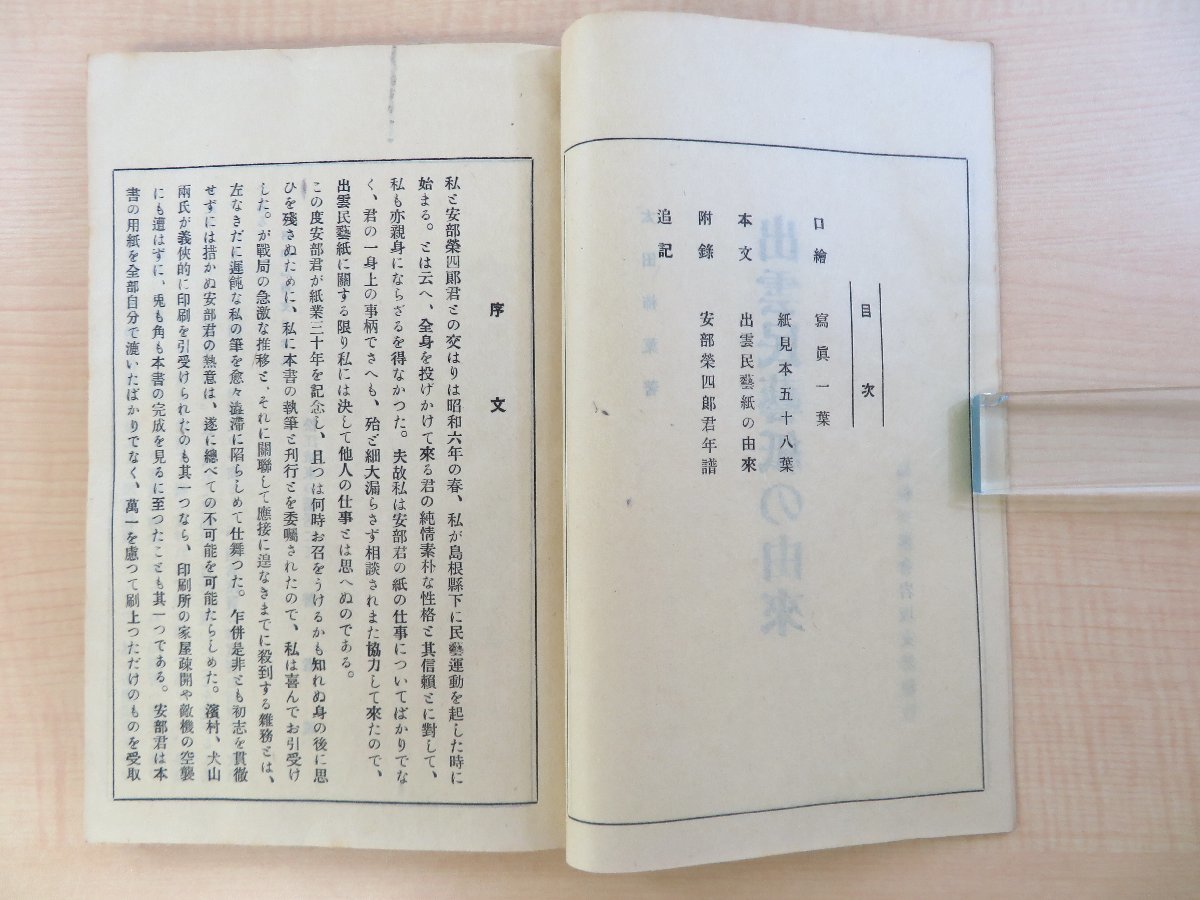 目次
口繪　寫眞一葉
紙見本五十八葉
本文　出雲民藝紙の由來
附錄　安部榮四郞君年譜
追記
序文
私と安部榮四郞君との交はりは昭和六年の春、私が島根縣下に民藝運動を起した時に
始まる。とは云へ、全身を投げかけて來る君の純情素朴な性格と其信賴とに對して、
私も亦親身にならざるを得なかつた。夫故私は安部君の紙の仕事についてばかりでな
く、君の一身上の事柄でさへも、殆ど細大漏らさず相談されまた協力して來たので、
出雲民藝紙に關する限り私には決して他人の仕事とは思へぬのである。
この度安部君が紙業三十年を記念し、且つは何時お召をうけるかも知れぬ身の後に思
ひを殘さぬために、私に本書の執筆と刊行とを委囑されたので、私は喜んでお引受け
した。が戰局の急激な推移と、それに關聯して應接に遑なきまでに殺到する雜務とは、
左なきだに遲鈍な私の筆を愈々澁滯に陷らしめて仕舞つた。乍併是非とも初志を貫徹
せずには措かぬ安部君の熱意は、遂に總べての不可能を可能たらしめた。濱村、犬山
兩氏が義俠的に印刷を引受けられたのも其一つなら、印刷所の家屋疎開や敵機の空襲
にも遭はずに、兎も角も本書の完成を見るに至つたことも其一つである。安部君は本
書の用紙を全部自分で漉いたばかりでなく、萬一を慮つて刷上つただけのものを受取
出雲民藝紙の由來